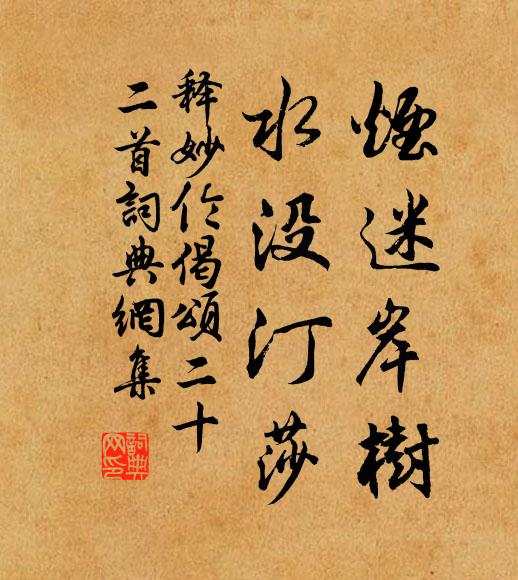 煙迷岸樹
水没汀莎
释妙伶偈頌二十
二首詞典網集
詞典
网印